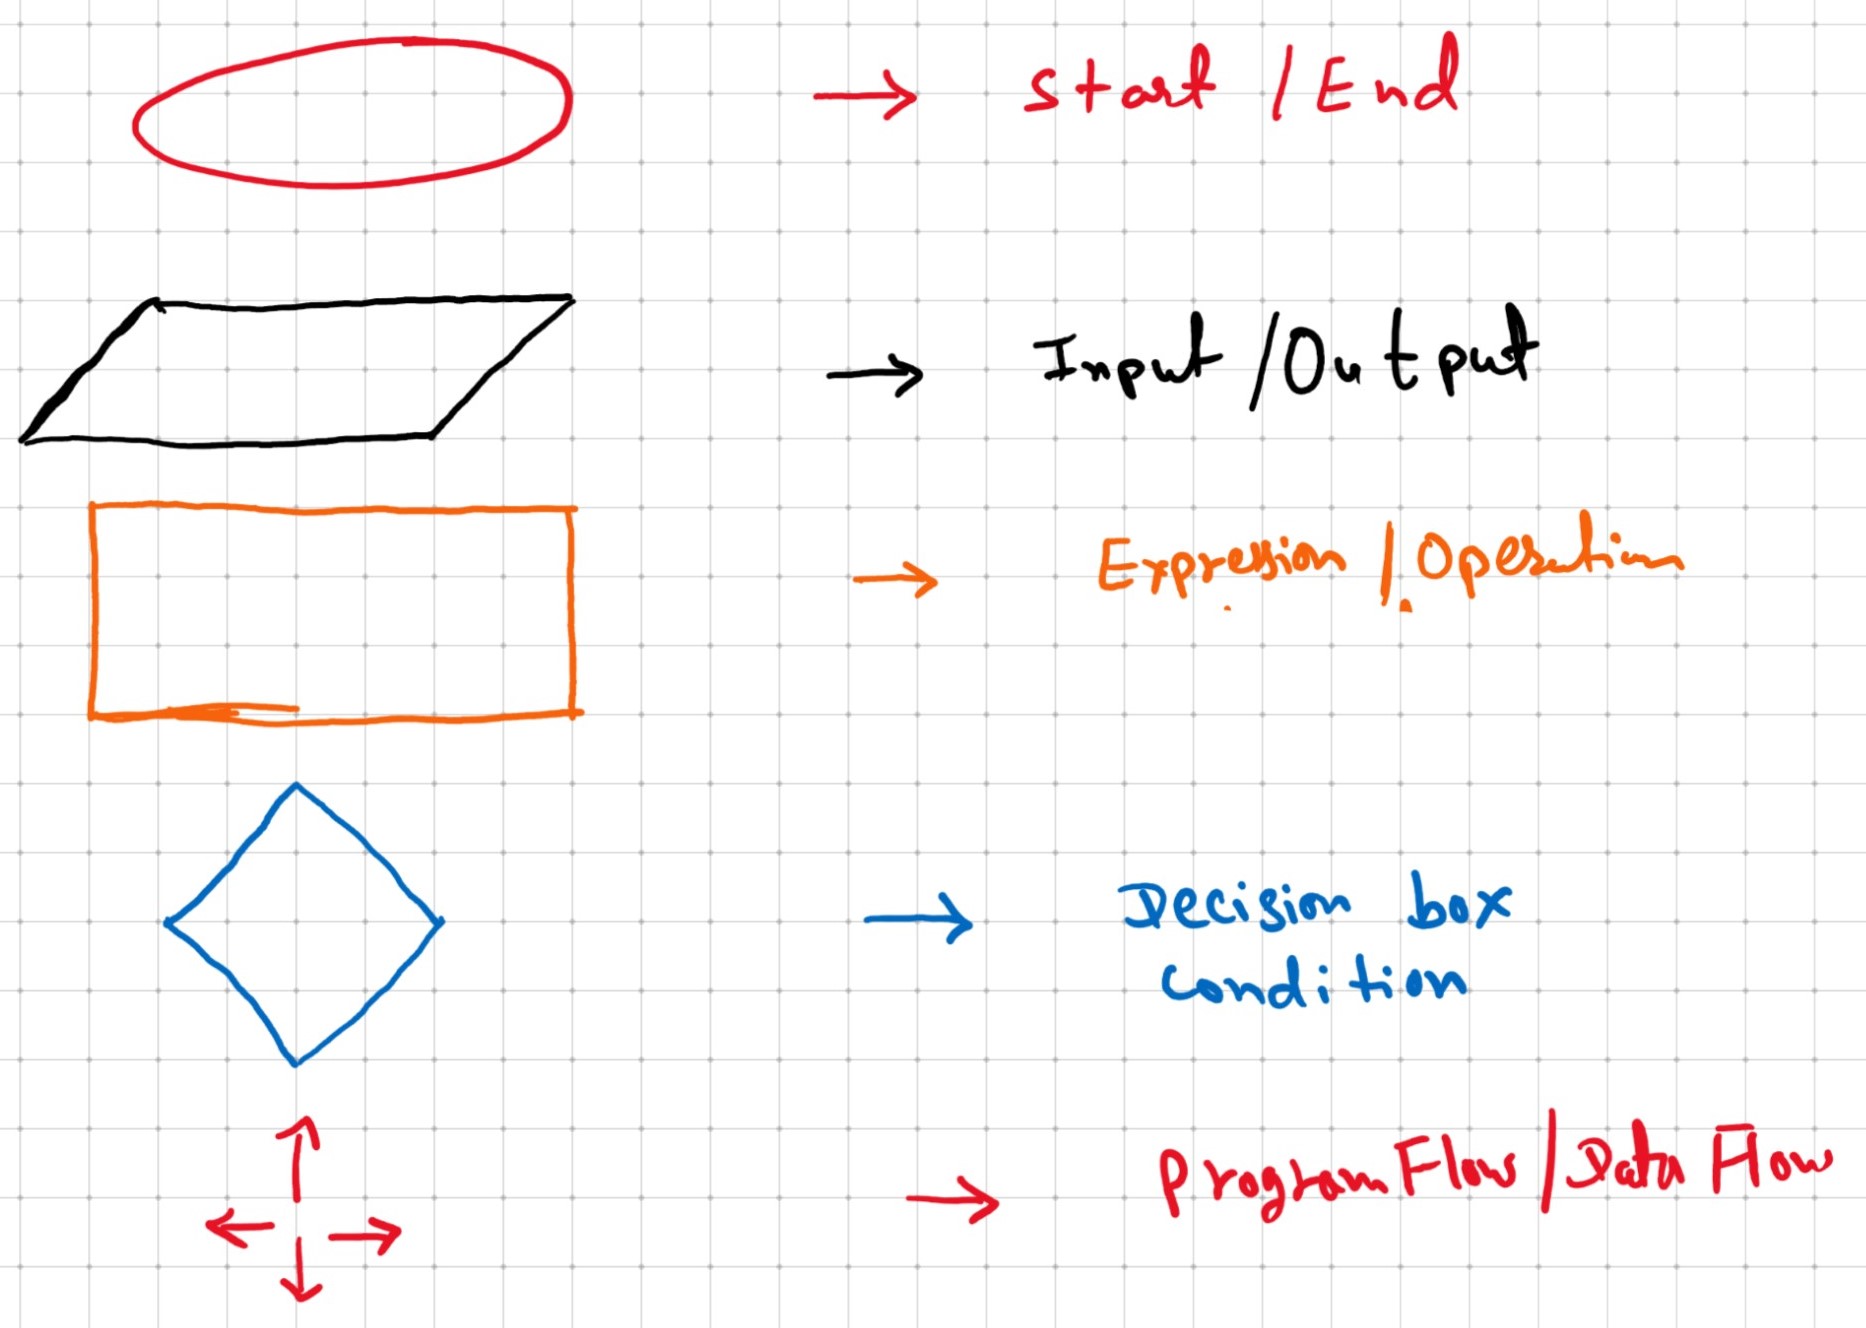 Start / End
Input / Output
Expression / Operation
Decision box
condition
Program Flow / Data Flow